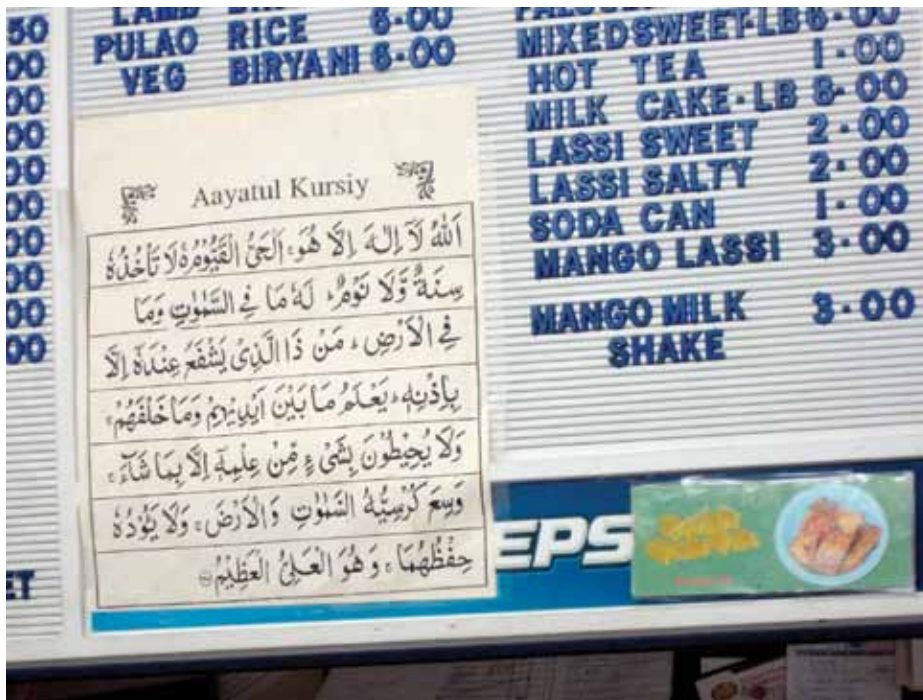 50
00
00
00
00
00
00
00
00
PULAO RICE 6·00
VEG BIRYANI 6·00
Aayatul Kursiy
اَللّٰهُ لَآ اِلٰهَ اِلَّا هُوَ، اَلْحَيُّ الْقَيُّوْمُ ەۚ لَا تَاْخُذُهٗ
سِنَةٌ وَّلَا نَوْمٌ، لَهٗ مَا فِي السَّمٰوٰتِ وَمَا
فِي الْاَرْضِ، مَنْ ذَا الَّذِيْ يَشْفَعُ عِنْدَهٗٓ اِلَّا
بِاِذْنِهٖ، يَعْلَمُ مَا بَيْنَ اَيْدِيْهِمْ وَمَا خَلْفَهُمْ،
وَلَا يُحِيْطُوْنَ بِشَيْءٍ مِّنْ عِلْمِهٖٓ اِلَّا بِمَا شَآءَ،
وَسِعَ كُرْسِيُّهُ السَّمٰوٰتِ وَالْاَرْضَ، وَلَا يَؤُدُهٗ
حِفْظُهُمَا، وَهُوَ الْعَلِيُّ الْعَظِيْمُ
MIXED SWEET-LB 6·00
HOT TEA 1·00
MILK CAKE·LB 8·00
LASSI SWEET 2·00
LASSI SALTY 2·00
SODA CAN 1·00
MANGO LASSI 3·00
MANGO MILK 3·00
SHAKE
ET
EPS